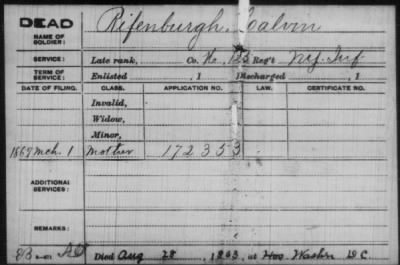 DEAD
NAME OF SOLDIER: Rifenburgh, Calvin
SERVICE: Late rank, Co. H, 125 Reg't N.Y. Inf
TERM OF SERVICE: Enlisted , 1 Discharged , 1
DATE OF FILING. CLASS. APPLICATION NO. LAW. CERTIFICATE NO.
Invalid,
Widow,
Minor,
1868 Mch. 1 Mother 172353
ADDITIONAL SERVICES:
REMARKS:
Died Aug 28, 1863, at Hos. Washn DC